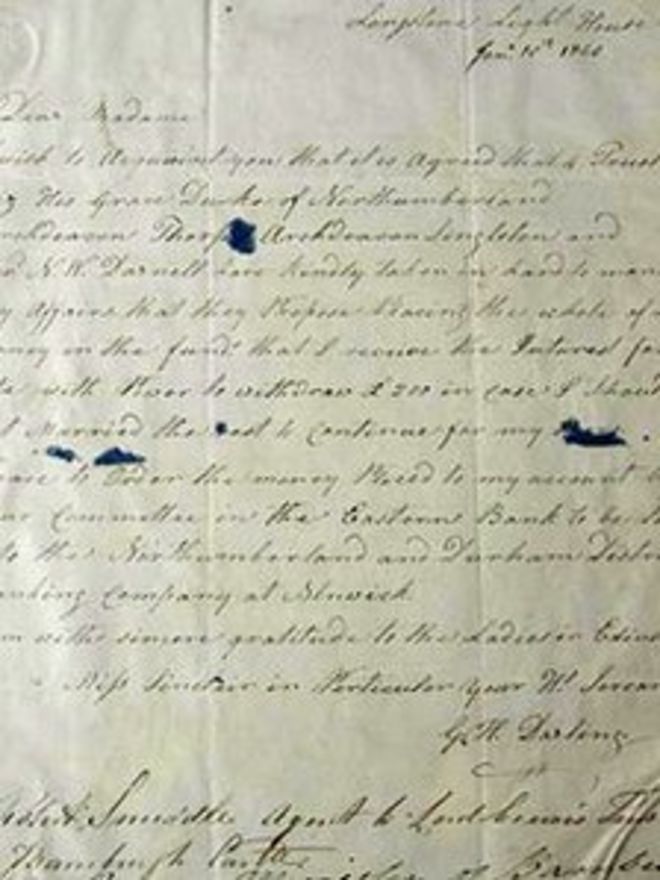 Longstone Light House
Jan.
Dear Madame
wish to Acquaint you that it is Agreed that a Trust
His Grace Duke of Northumberland
Thorp Archdeacon Singleton and
N.W. Darnell have kindly taken in hand to man
Affairs that they Propose Placing the whole of
in the fund that I receive the Interest
with Power to withdraw £200 in case I shoud
Married the rest to continue for my
to order the money Placed to my account
Committee in the Eastern Bank to be
to the Northumberland and Durham Distri
anking Company at Alnwick
with sincere gratitude to the Ladies in Edin
Miss Sinclair in Perticular your Hl Servan
G.H. Darling
Smeddle Agent to Lord Crewe's
Bamburgh Castle
of